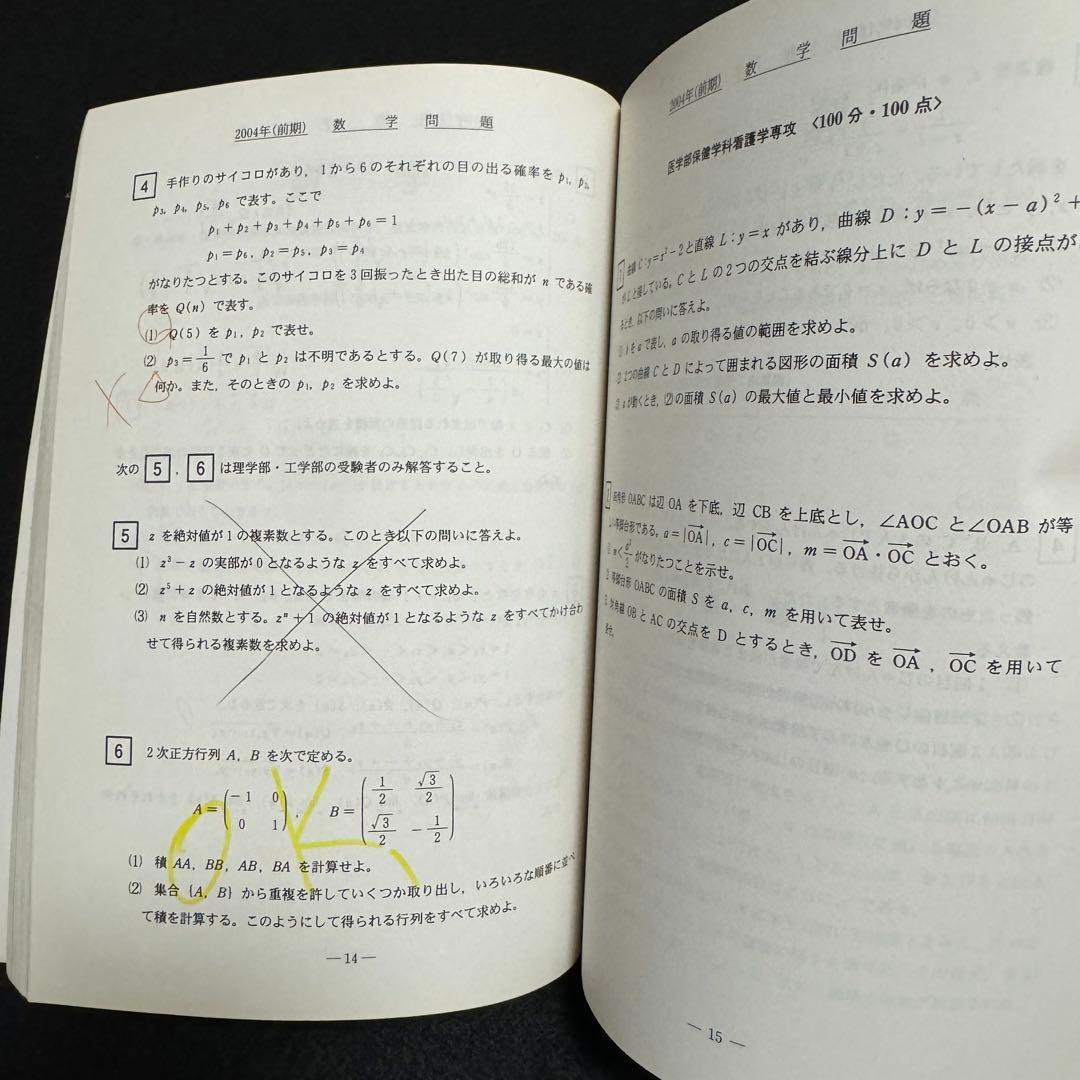 2004年(前期) 数 学 問 題
4 手作りのサイコロがあり，1から6のそれぞれの目の出る確率を p₁, p₂,
p₃, p₄, p₅, p₆ で表す。ここで
p₁＋p₂＋p₃＋p₄＋p₅＋p₆＝1
p₁＝p₆, p₂＝p₅, p₃＝p₄
がなりたつとする。このサイコロを3回振ったとき出た目の総和が n である確
率を Q(n) で表す。
(1) Q(5) を p₁, p₂ で表せ。
(2) p₃＝1/6 で p₁ と p₂ は不明であるとする。Q(7) が取り得る最大の値は
何か。また，そのときの p₁, p₂ を求めよ。
次の 5 , 6 は理学部・工学部の受験者のみ解答すること。
5 z を絶対値が1の複素数とする。このとき以下の問いに答えよ。
(1) z³－z の実部が0となるような z をすべて求めよ。
(2) z⁵＋z の絶対値が1となるような z をすべて求めよ。
(3) n を自然数とする。zⁿ＋1 の絶対値が1となるような z をすべてかけ合わ
せて得られる複素数を求めよ。
6 2次正方行列 A, B を次で定める。
A＝(－1 0; 0 1), B＝(1/2 √3/2; √3/2 －1/2)
OK
(1) 積 AA, BB, AB, BA を計算せよ。
(2) 集合 {A, B} から重複を許していくつか取り出し，いろいろな順番に並べ
て積を計算する。このようにして得られる行列をすべて求めよ。
—14—
2004年(前期) 数 学 問 題
医学部保健学科看護学専攻 〈100分・100点〉
1 曲線 C：y＝x²－2 と直線 L：y＝x があり，曲線 D：y＝－(x－a)²＋
が L と接している。C と L の2つの交点を結ぶ線分上に D と L の接点が
るとき，以下の問いに答えよ。
(1) b を a で表し，a の取り得る値の範囲を求めよ。
(2) 2つの曲線 C と D によって囲まれる図形の面積 S(a) を求めよ。
(3) a が動くとき，(2)の面積 S(a) の最大値と最小値を求めよ。
OABC は辺 OA を下底，辺 CB を上底とし，∠AOC と∠OAB が等
しい等脚台形である。a＝|OA|, c＝|OC|, m＝OA・OC とおく。
m＜a²/2 がなりたつことを示せ。
等脚台形 OABC の面積 S を a, c, m を用いて表せ。
対角線 OB と AC の交点を D とするとき，OD を OA , OC を用いて
表せ。
— 15 —